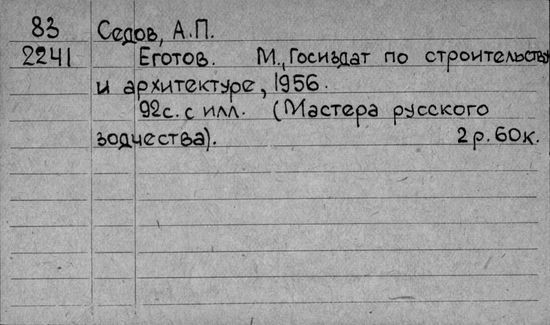 83 Седов, А.П.
2241 Еготов. М., Госиздат по строительству
и архитектуре, 1956.
92с. с илл. (Мастера русского
зодчества). 2р. 60к.